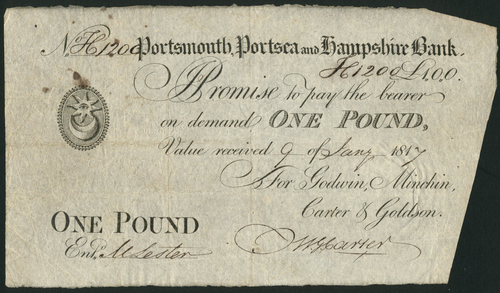 No. H1200 Portsmouth, Portsea and Hampshire Bank.
H1200 £1.0.0.
I Promise to pay the bearer
on demand ONE POUND,
Value received 9 of Jany 1817
For Godwin, Minchin,
Carter & Goldson.
ONE POUND
Entd. M Lester
W Carter